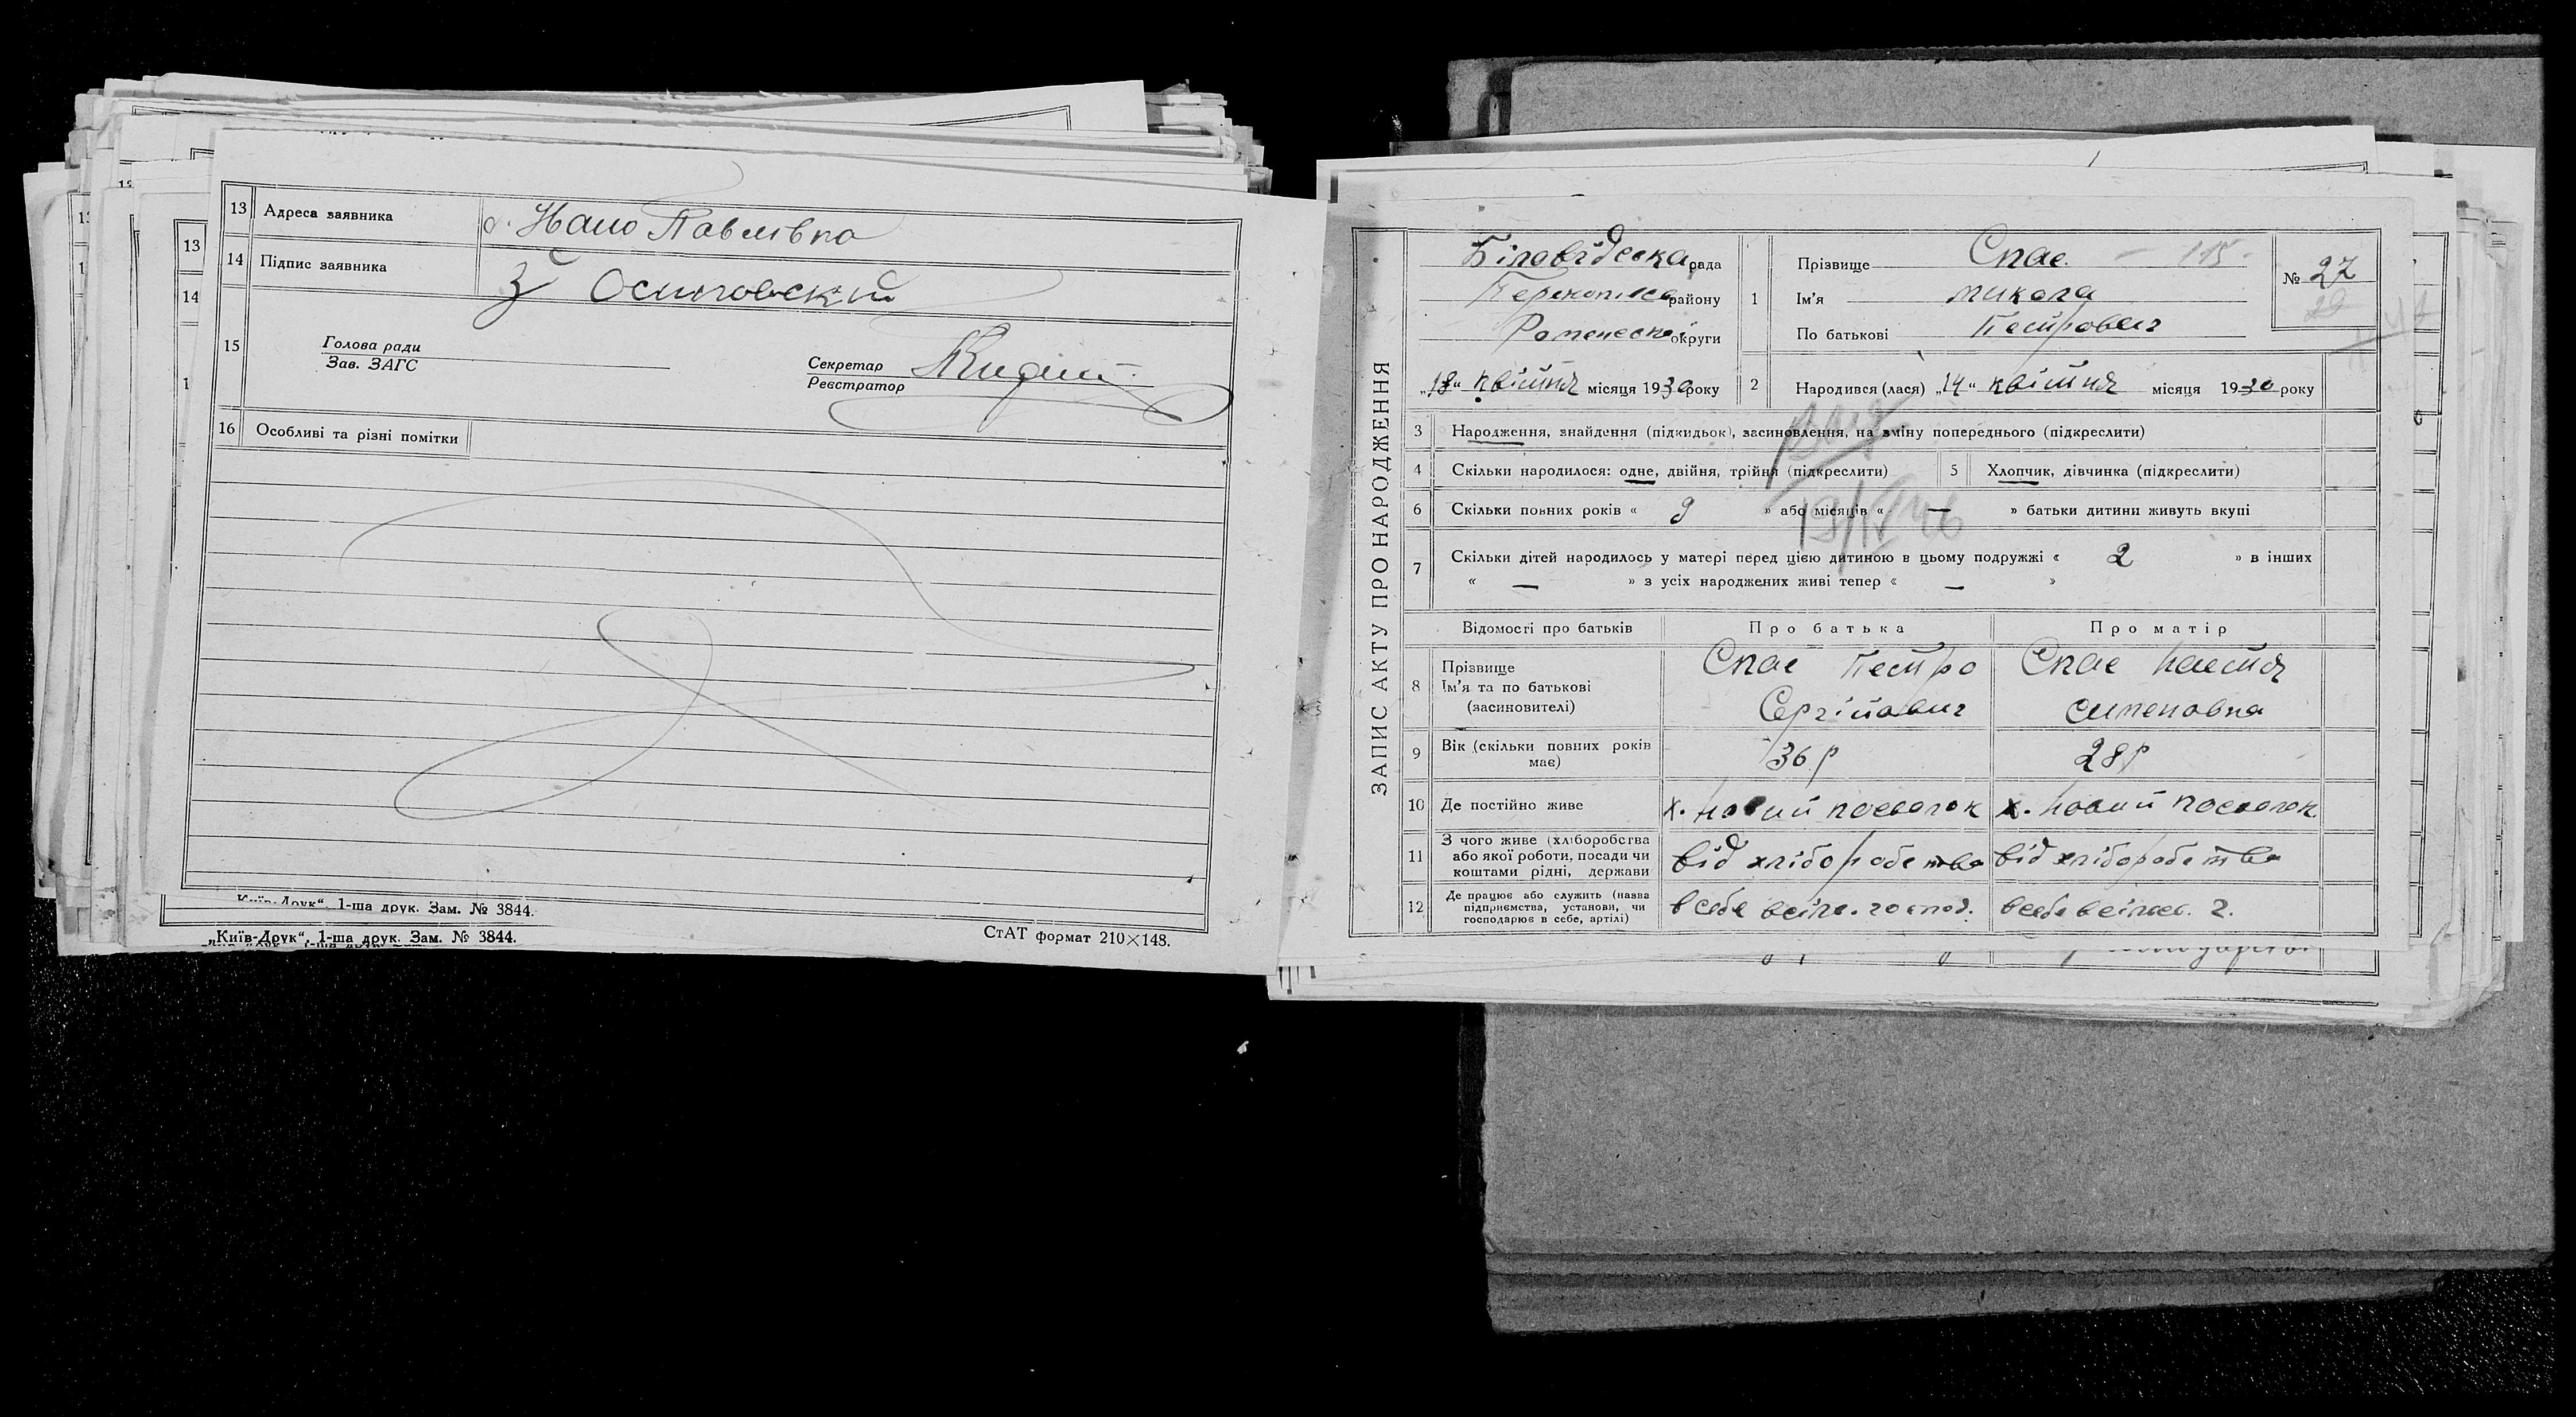 13 Адреса заявника с. Ново Павлівка
14 Підпис заявника З Осиповский
15 Голова ради
Зав. ЗАГС
Секретар
Реєстратор
16 Особливі та різні помітки
"Київ-Друк", 1-ша друк. Зам. № 3844.
СтАТ формат 210×148.
13
14
ЗАПИС АКТУ ПРО НАРОДЖЕННЯ
Біловідська рада
району
Роменської округи
„18“ квітня місяця 1930 року
1 Прізвище Спас 115
Ім'я микола
По батькові Петрович
№ 27
2 Народився (лася) „14“ квітня місяця 1930 року
3 Народження, знайдення (підкидьок), засиновлення, на зміну попереднього (підкреслити)
4 Скільки народилося: одне, двійня, трійня (підкреслити) 5 Хлопчик, дівчинка (підкреслити)
6 Скільки повних років « 9 » або місяців « — » батьки дитини живуть вкупі
19/IV 46
7 Скільки дітей народилось у матері перед цією дитиною в цьому подружжі « 2 » в інших
« — » з усіх народжених живі тепер « — »
Відомості про батьків Про батька Про матір
8 Прізвище
Ім'я та по батькові
(засиновителі)
Спас Петро
Сергійович
Спас Настя
сименовна
9 Вік (скільки повних років має) 36 р 28 р
10 Де постійно живе х. новий посьолок х. новий посьолок
11 З чого живе (хліборобства
або якої роботи, посади чи
коштами рідні, держави
від хліборобства від хліборобства
12 Де працює або служить (назва
підприємства, установи, чи
господарює в себе, артілі)
в себе в сільс. господ. в себе в сільс. г.